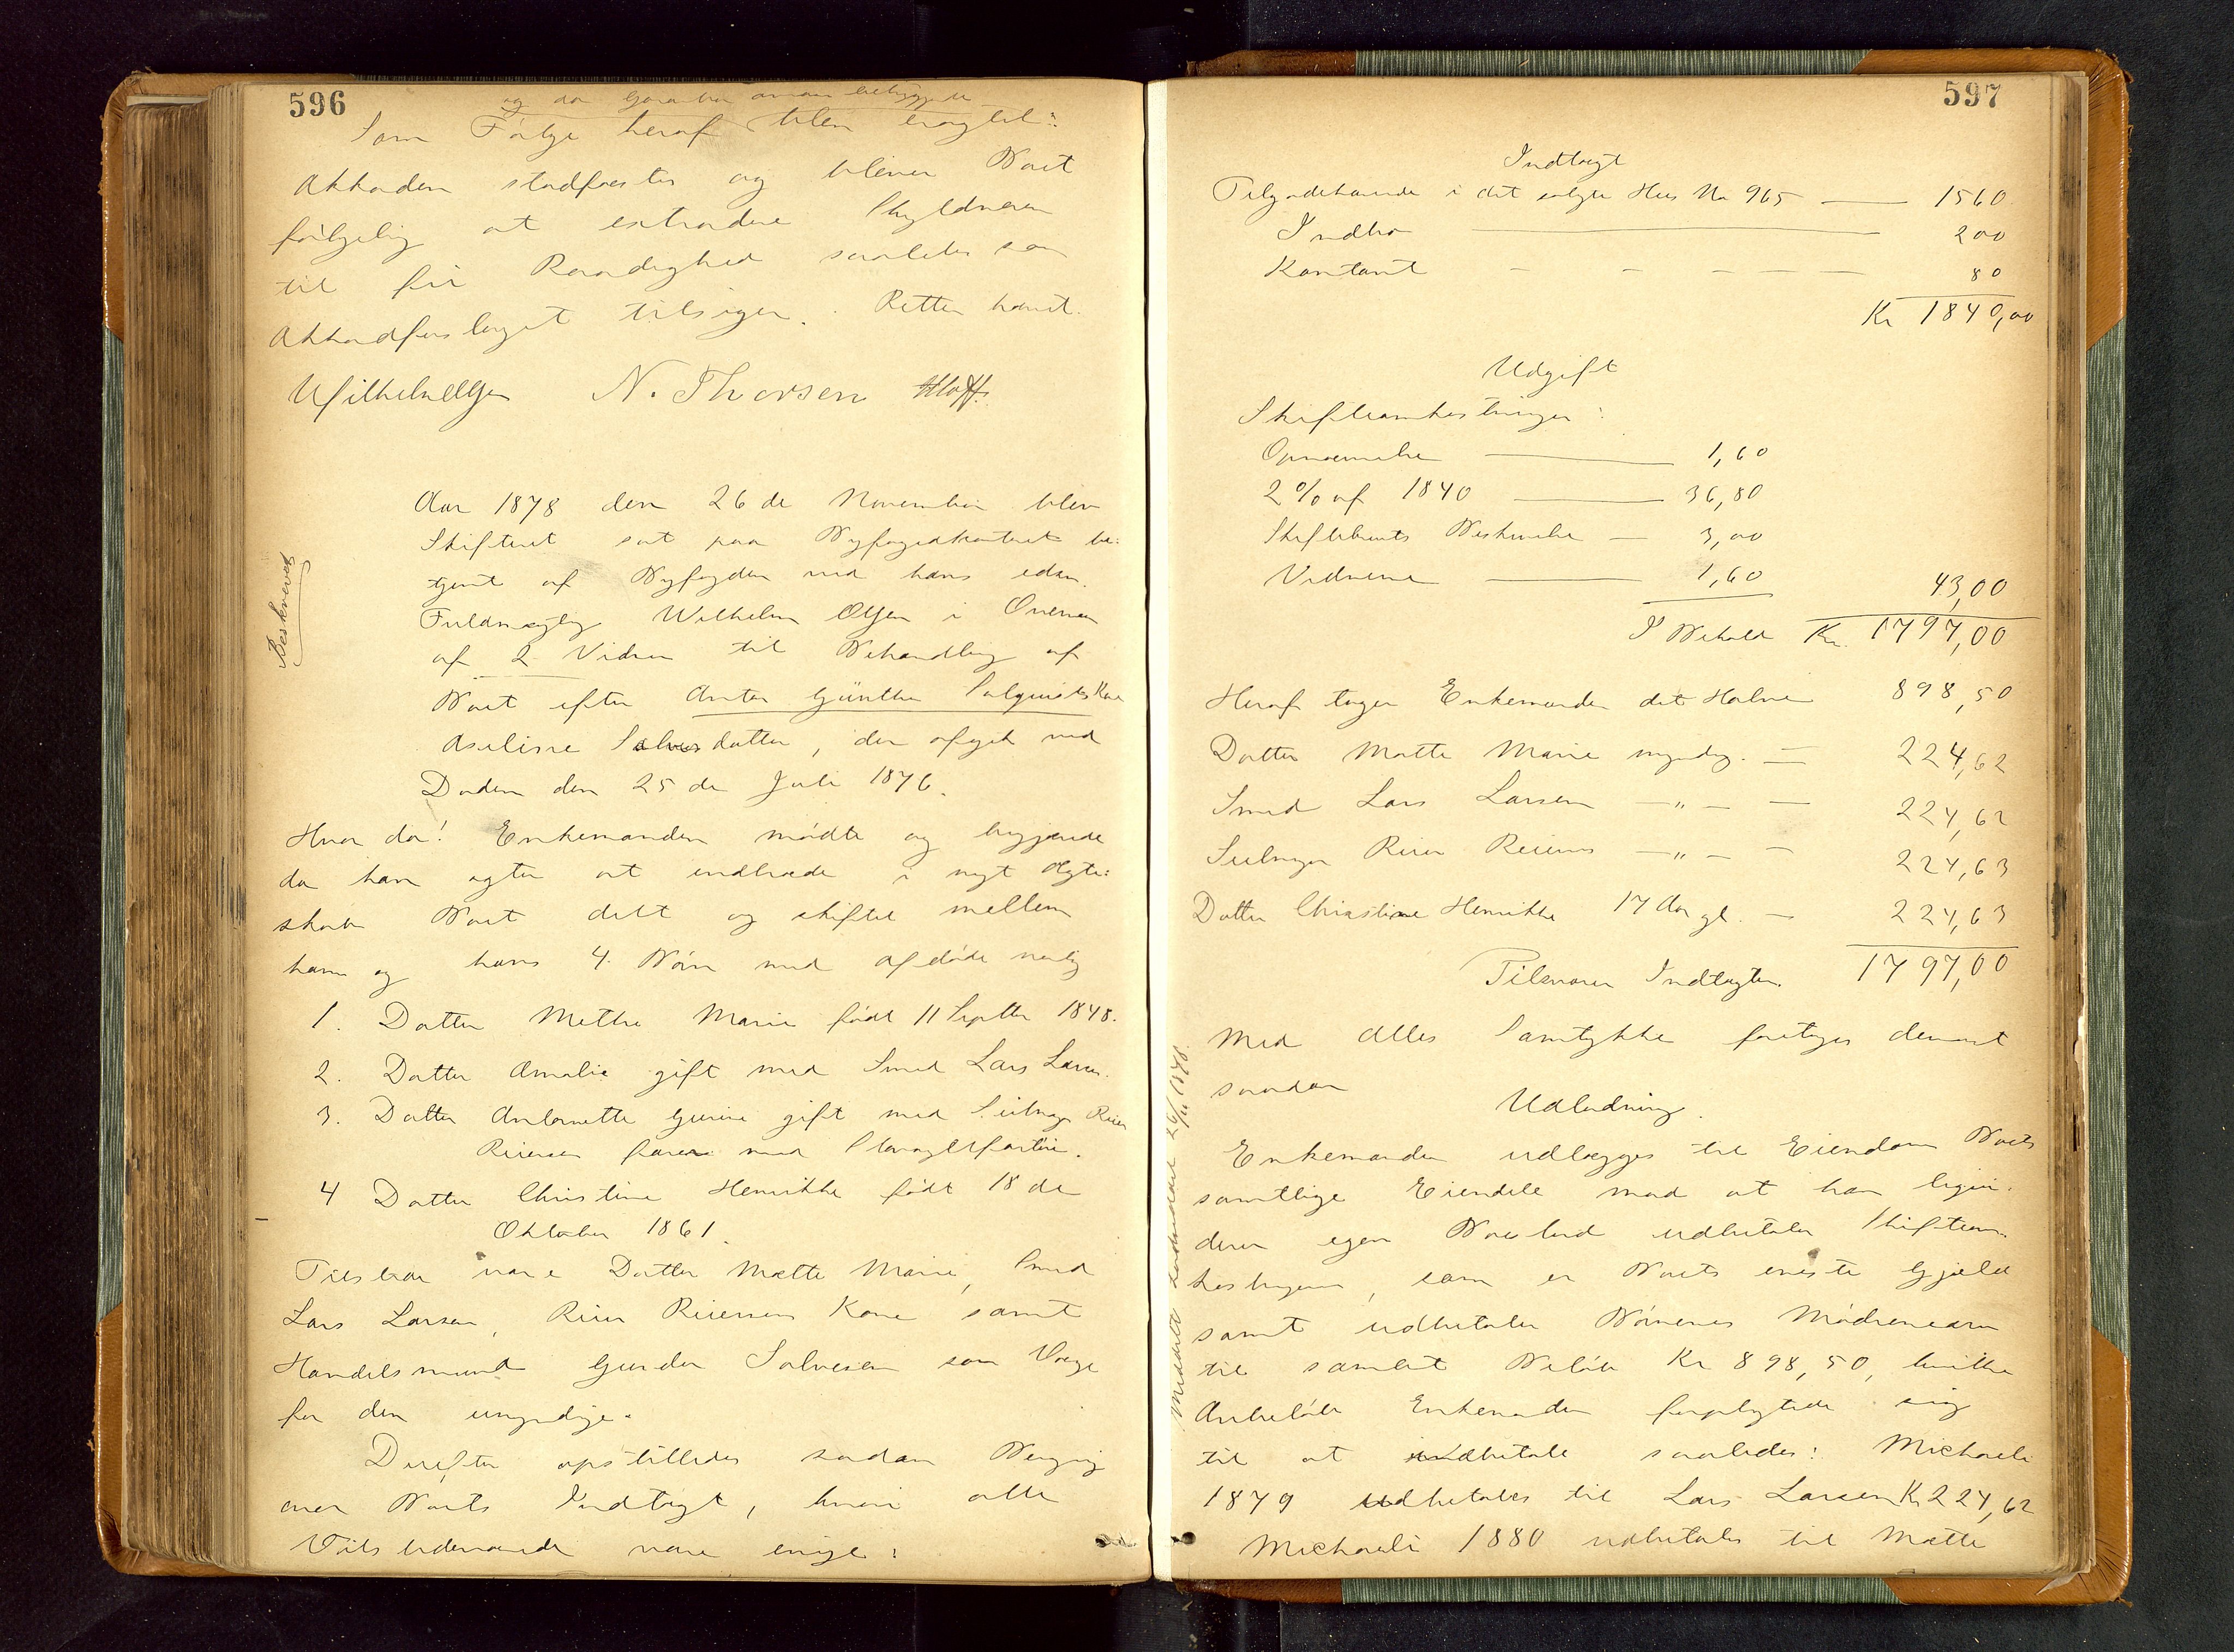 596
og da
Som Følge heraf blev eragtet:
Akkorden stadfæstes og bliver Boet
følgelig at extradere Skyldneren
til fri Raadighed saaledes som
Akkordforslaget tilsiger. Retten hævet.
Wilhelm Olsen N. Thorsen Hloff.
Beskrevet
Aar 1878 den 26de November blev
Skifteret sat paa Byfogedkontoret be:
tjent af Byfogden ved hans edsv.
Fuldmægtig Wilhelm Olsen i Overvær
af 2 Vidner til Behandling af
Boet efter Anton Günther Salquists Kone
Aseline Salvesdatter, der afgik ved
Døden den 25de Juli 1876.
Hvor da! Enkemanden mødte og begjærede
da han agter at indtræde i nyt Ægte:
skab Boet delt og skiftet mellem
ham og hans 4 Børn med afdøde nemlig
1. Datter Methe Marie født 11 Septbr 1848.
2. Datter Amalie gift med Smed Lars Larsen.
3. Datter Antonette Gurine gift med Reier
Reiersen farer med
4 Datter Christine Henrikke født 18de
Oktober 1861.
Tilstede vare Datter Mætte Marie, Smed
Lars Larsen, Reier Reiersens Kone samt
Handelsmand Gunder Salvesen som Værge
for den umyndige.
Derefter opstilledes saadan Beregning
over Boets Indtægt, hvori alle
Tilstedeværende vare enige:
597
Indtægt
Tilgodehavende i det solgte Hus No 965 — 1560
Indbo — 200
Kontant — — — — — 80
Kr 1840,00
Udgift
Skifteomkostninger:
Opnævnelse — 1,60
2% af 1840 — 36,80
Skiftebrevets Beskrivelse — 3,00
Vidnerne — 1,60 43,00
I Behold Kr. 1797,00
Heraf tager Enkemanden det Halve 898,50
Datter Mætte Marie myndig. — 224,62
Smed Lars Larsen — " — — 224,62
Reier Reiersen — " — — 224,63
Datter Christine Henrikke 17 Aar gl. — 224,63
Tilsvarer Indtægten. 1797,00
Med Alles Samtykke foretoges dernæst
saadan
Udlodning.
Enkemanden udlægges til Eiendom Boets
samtlige Eiendele mod at han ligeoverfor
deres egen Boeslod udbetaler Skifteom-
kostningerne, som er Boets eneste Gjæld
samt udbetaler Børnenes Mødrenearv
til samlet Beløb Kr 898,50, hvilke
Arvebeløb Enkemanden forpligtede sig
til at udbetale saaledes: Michaeli
1879 udbetales til Lars Larsen Kr 224,62
Michaeli 1880 udbetales til Mætte
26/11 1878.